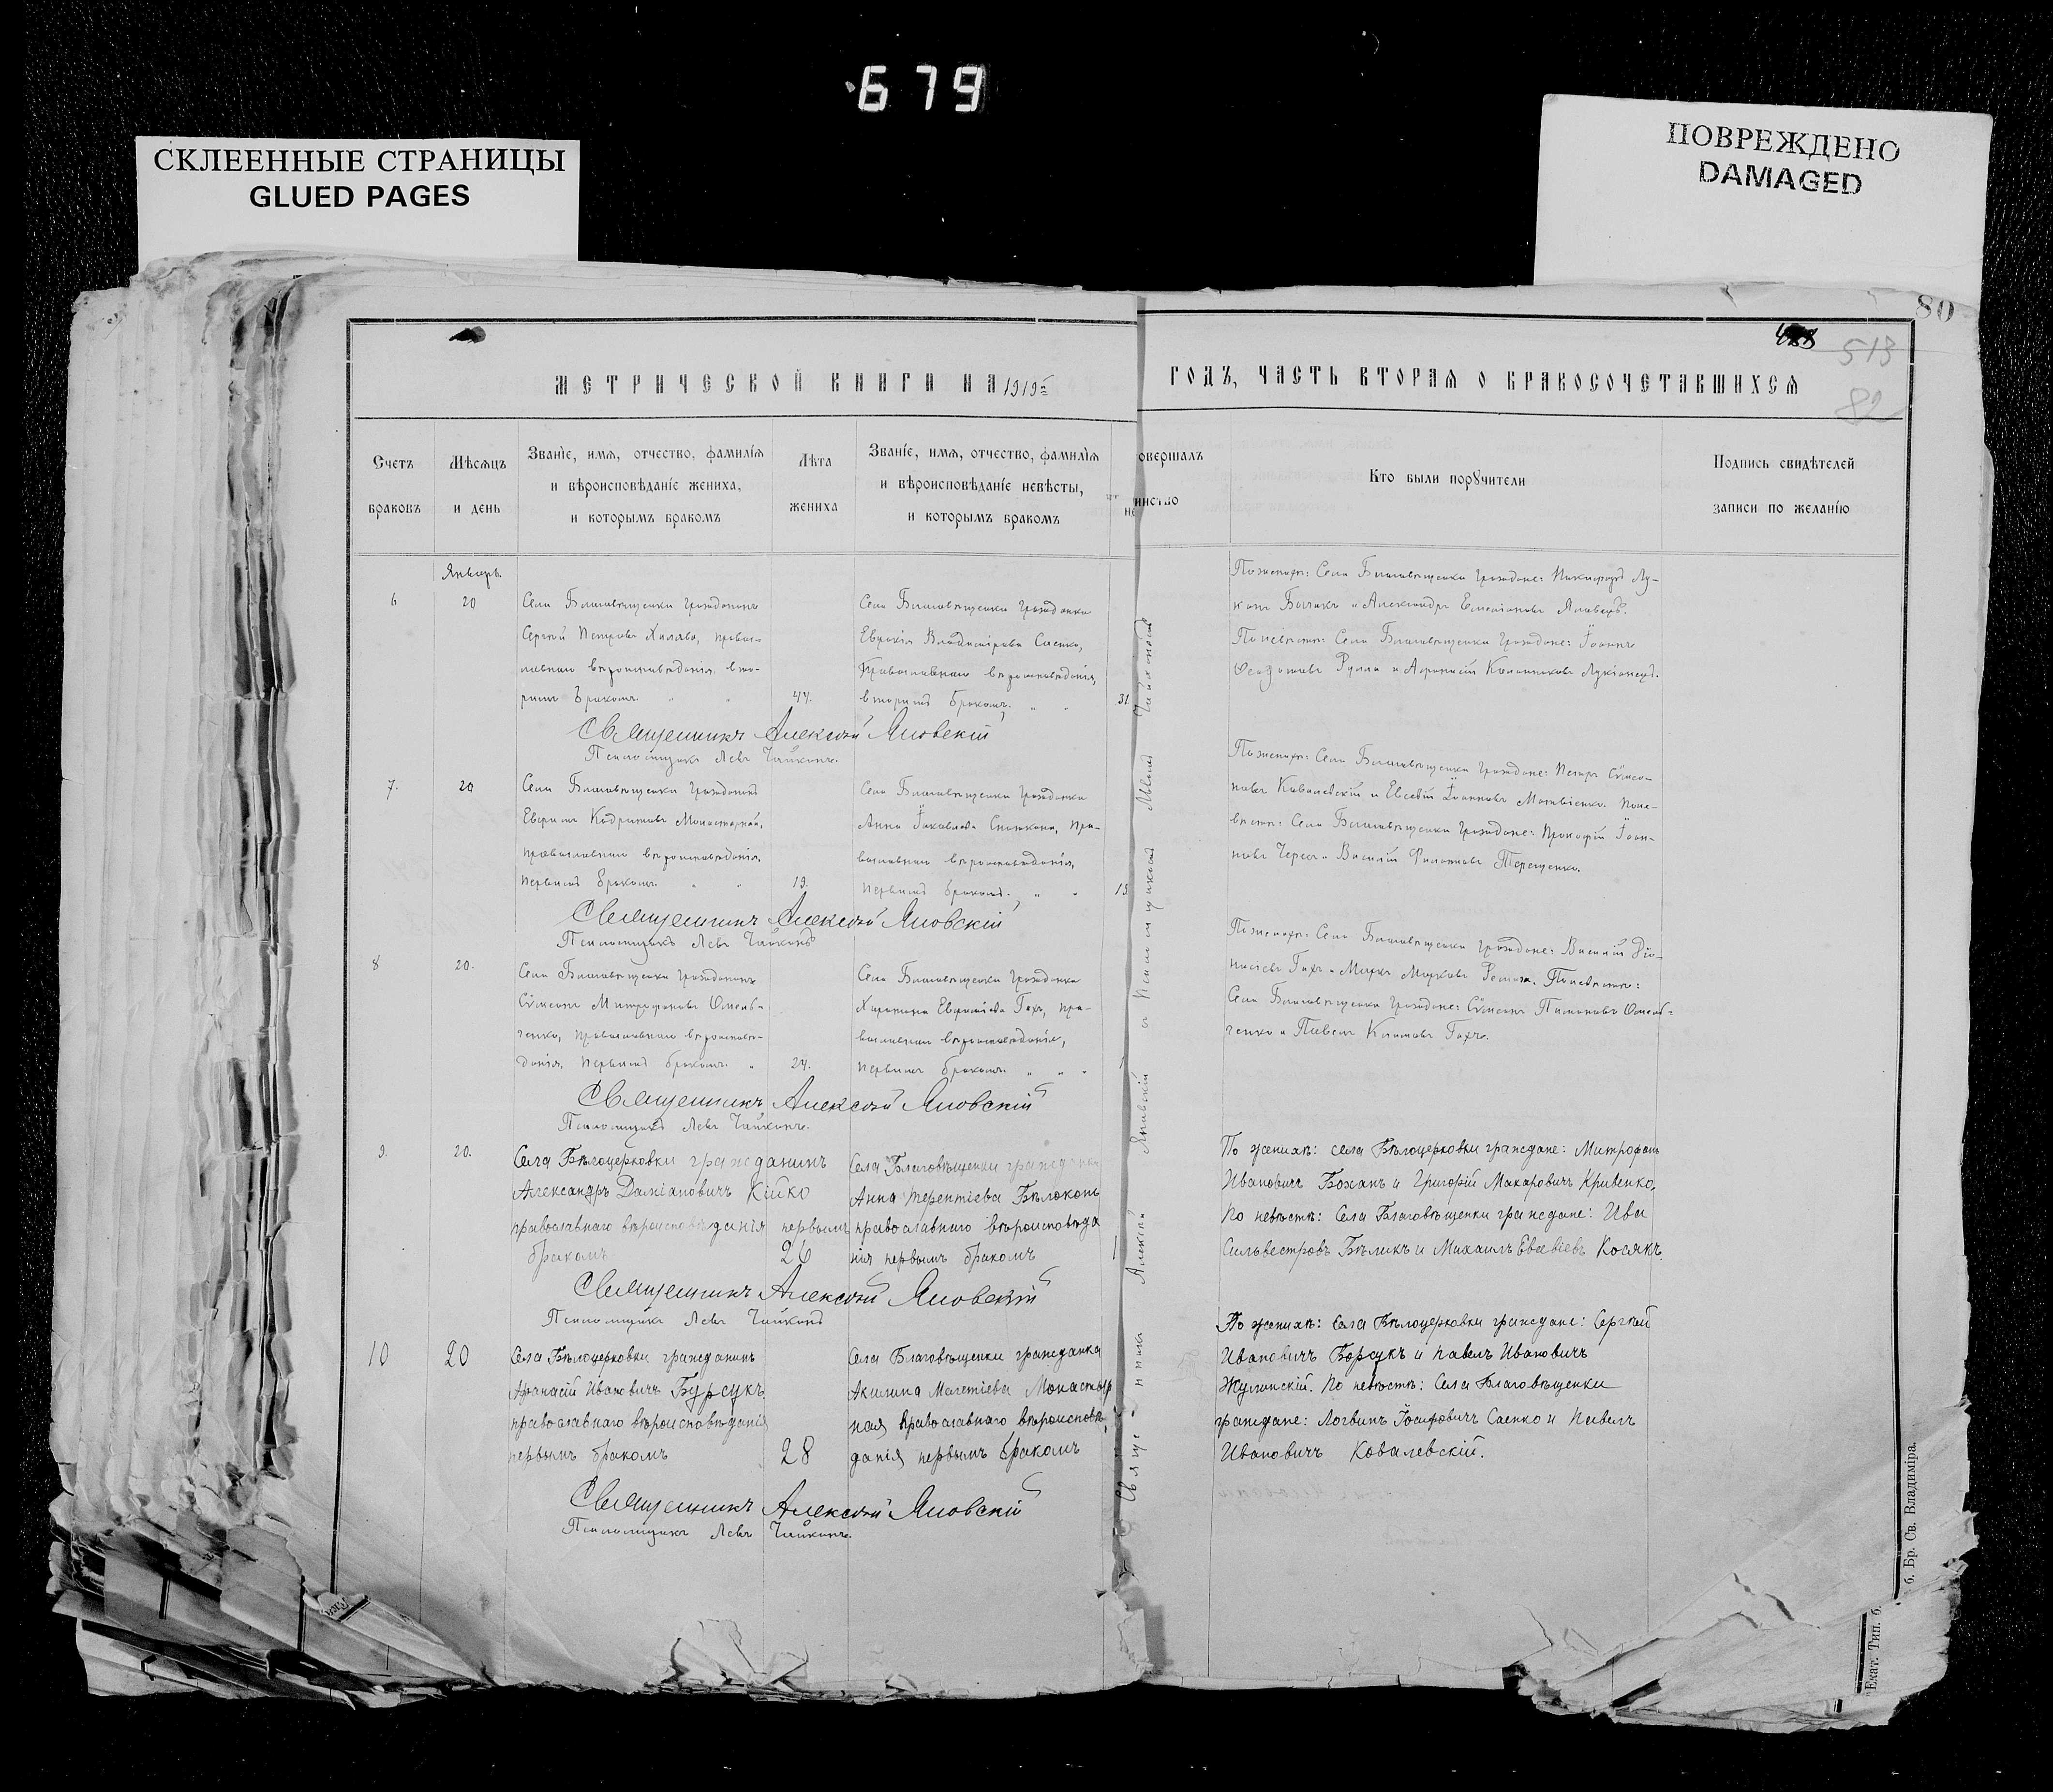 679
СКЛЕЕННЫЕ СТРАНИЦЫ
GLUED PAGES
ПОВРЕЖДЕНО
DAMAGED
80
513
82
МЕТРИЧЕСКОЙ КНИГИ НА 1919й
ГОДЪ, ЧАСТЬ ВТОРАЯ О БРАКОСОЧЕТАВШИХСЯ
Счетъ
браковъ
Мѣсяцъ
и день
Званіе, имя, отчество, фамилія
и вѣроисповѣданіе жениха,
и которымъ бракомъ
Лѣта
жениха
Званіе, имя, отчество, фамилія
и вѣроисповѣданіе невѣсты,
и которымъ бракомъ
овершалъ
инство
Кто были поручители
Подпись свидѣтелей
записи по желанію
Январь.
6
20
Села Благовѣщенки гражданинъ
Сергѣй Петровъ Халява, право-
славнаго вѣроисповѣданія, вто-
рымъ бракомъ. " "
44.
Села Благовѣщенки гражданка
Евдокія Владимірова Саенко,
православнаго вѣроисповѣданія,
вторымъ бракомъ. " "
31
По женихѣ: Села Благовѣщенки граждане: Никифоръ Лу-
кинъ Бычекъ и Александръ Емеліановъ Яловецъ.
По невѣстѣ: Села Благовѣщенки граждане: Іоаннъ
Ѳеодотовъ Рулла и Афанасій Каллиниковъ Лукіанецъ.
Священникъ Алексѣй Яновскій
Псаломщикъ Левъ Чайкинъ.
7.
20
Села Благовѣщенки гражданинъ
Ефремъ Кодратовъ Монастырной,
православнаго вѣроисповѣданія,
первымъ бракомъ. " "
19.
Села Благовѣщенки гражданка
Анна Іаковлева Сниткина, пра-
вославнаго вѣроисповѣданія,
первымъ бракомъ. " "
19
По женихѣ: Села Благовѣщенки граждане: Петръ Сѵмео-
новъ Ковалевскій и Евсевій Іоанновъ Матвіенко. По не-
вѣстѣ: Села Благовѣщенки граждане: Прокофій Іоан-
новъ Чересъ и Василій Филиповъ Терещенко.
Священникъ Алексѣй Яновскій
Псаломщикъ Левъ Чайкинъ
8
20.
Села Благовѣщенки гражданинъ
Сѵмеонъ Митрофановъ Омель-
ченко, православнаго вѣроисповѣ-
данія, первымъ бракомъ. "
24.
Села Благовѣщенки гражданка
Харитина Евфиміева Гахъ, пра-
вославнаго вѣроисповѣданія,
первымъ бракомъ. " " "
По женихѣ: Села Благовѣщенки граждане: Василій Діо-
нисіевъ Гахъ и Маркъ Марковъ Репиха. По невѣстѣ:
Села Благовѣщенки граждане: Сѵмеонъ Пименовъ Омель-
ченко и Павелъ Климовъ Гахъ.
Священникъ Алексѣй Яновскій
Псаломщикъ Левъ Чайкинъ.
9.
20.
Села Бѣлоцерковки гражданинъ
Александръ Даміановичъ Кійко
православнаго вѣроисповѣданія первымъ
бракомъ
26
Села Благовѣщенки гражданка
Анна Терентіева Бѣлоконь
православнаго вѣроисповѣда
нія первымъ бракомъ
По женихѣ: села Бѣлоцерковки граждане: Митрофанъ
Ивановичъ Боханъ и Григорій Макаровичъ Кривенко.
По невѣстѣ: Села Благовѣщенки граждане: Ива
Сильвестровъ Бѣликъ и Михаилъ Евсевіевъ Косякъ.
Священникъ Алексѣй Яновскій
Псаломщикъ Левъ Чайкинъ
10
20
Села Бѣлоцерковки гражданинъ
Афанасій Ивановичъ Бурсукъ
православнаго вѣроисповѣданія
первымъ бракомъ
28
Села Благовѣщенки гражданка
Акилина Малетіева Монастыр
ная православнаго вѣроисповѣ
данія первымъ бракомъ
По женихѣ: Села Бѣлоцерковки граждане: Сергѣй
Ивановичъ Борсукъ и Павелъ Ивановичъ
Жулинскій. По невѣстѣ: Села Благовѣщенки
граждане: Логвинъ Іосифовичъ Саенко и Павелъ
Ивановичъ Ковалевскій.
Священникъ Алексѣй Яновскій
Псаломщикъ Левъ Чайкинъ.
Священникъ Алексѣй Яновскій и Псаломщикъ Левъ Чайкинъ
Екат. Тип. б. Бр. Св. Владиміра.